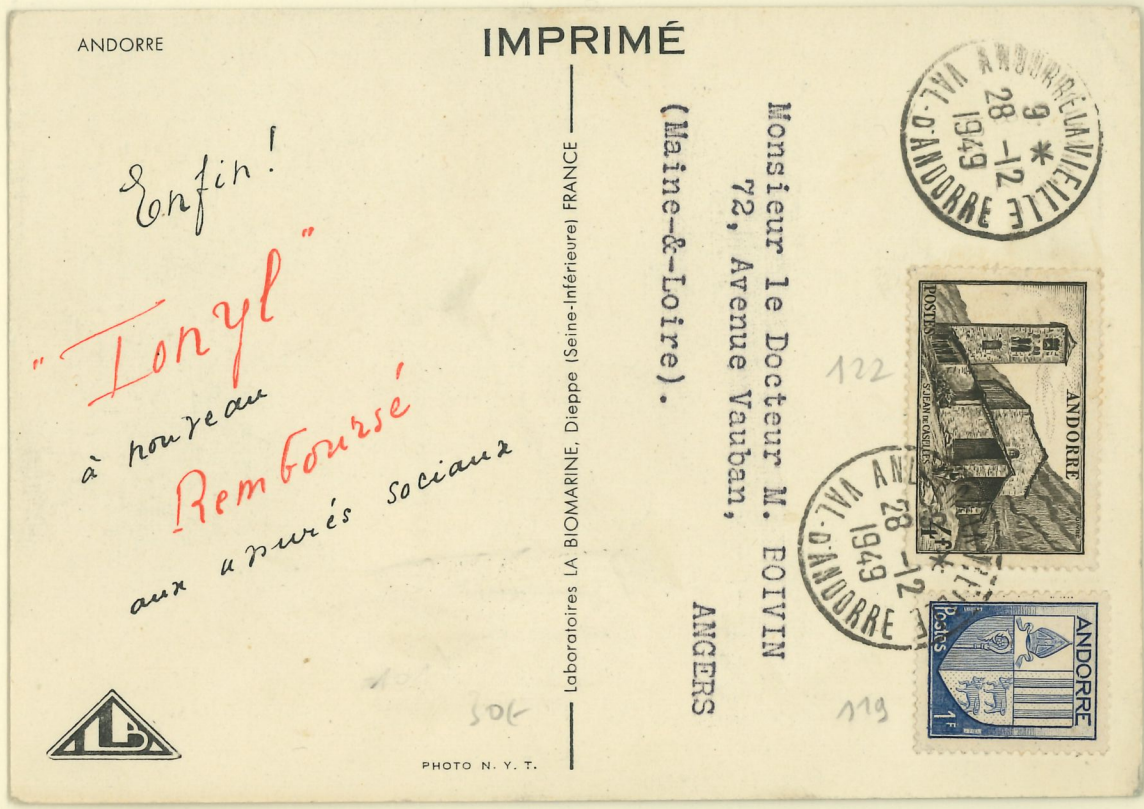 ANDORRE
IMPRIMÉ
Enfin!
"Ionyl"
à nouveau
Remboursé
aux assurés sociaux
Laboratoires LA BIOMARINE, Dieppe (Seine-Inférieure) FRANCE
LB
PHOTO N. Y. T.
Monsieur le Docteur M. BOIVIN
72, Avenue Vauban,
ANGERS
(Maine-&-Loire).
ANDORRE LA VIEILLE
9 *
28 -12
1949
VAL-D'ANDORRE
POSTES
ANDORRE
S. JEAN DE CASELLES
4F
28 -12
1949
VAL-D'ANDORRE
Postes
ANDORRE
1F
122
119
50€